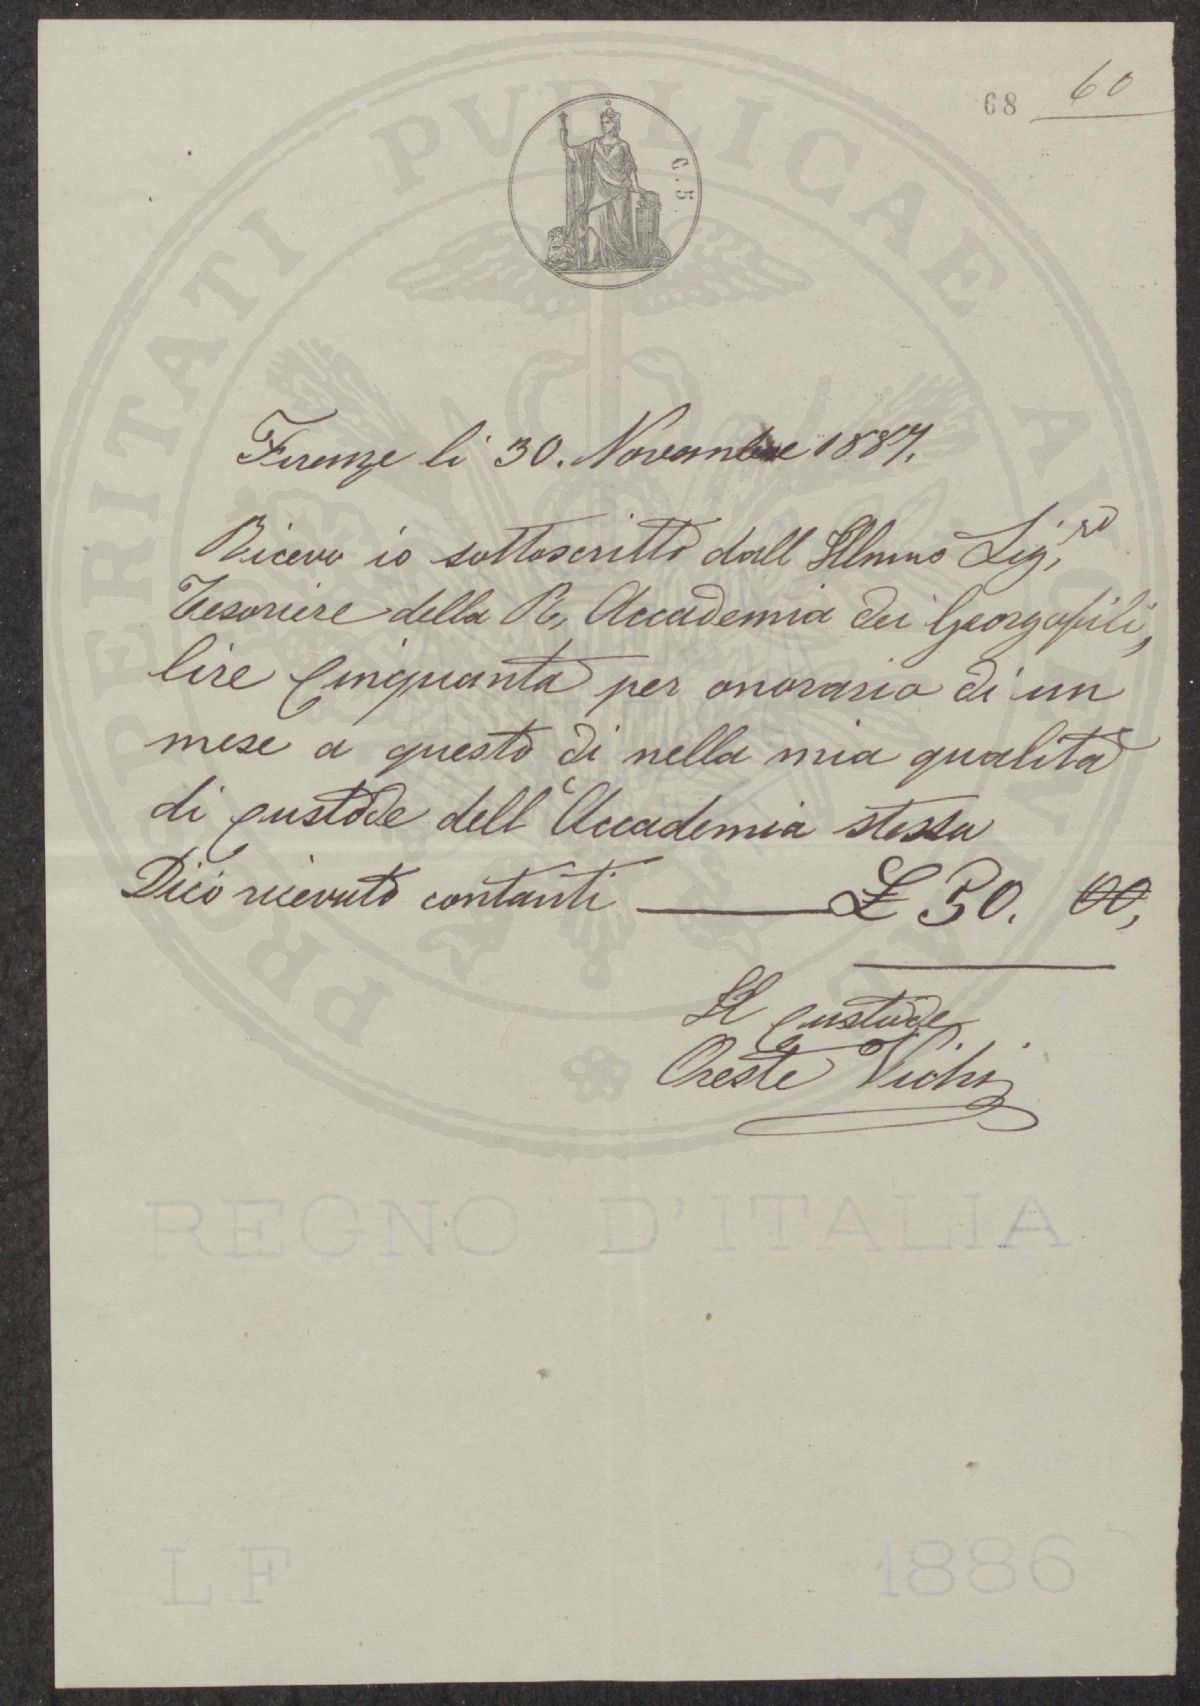 68 60
C. 5
PROSPERITATI PUBLICAE
Firenze li 30. Novembre 1887.
Ricevo io sottoscritto dall Illmmo Sig.re
Tesoriere della R. Accademia dei Georgofili,
lire Cinquanta per onorario di un
mese a questo dì nella mia qualità
di Custode dell'Accademia stessa
Dico ricevuto contanti £ 50. 00,
Il Custode
Oreste Vichi
REGNO D'ITALIA
LF 1886